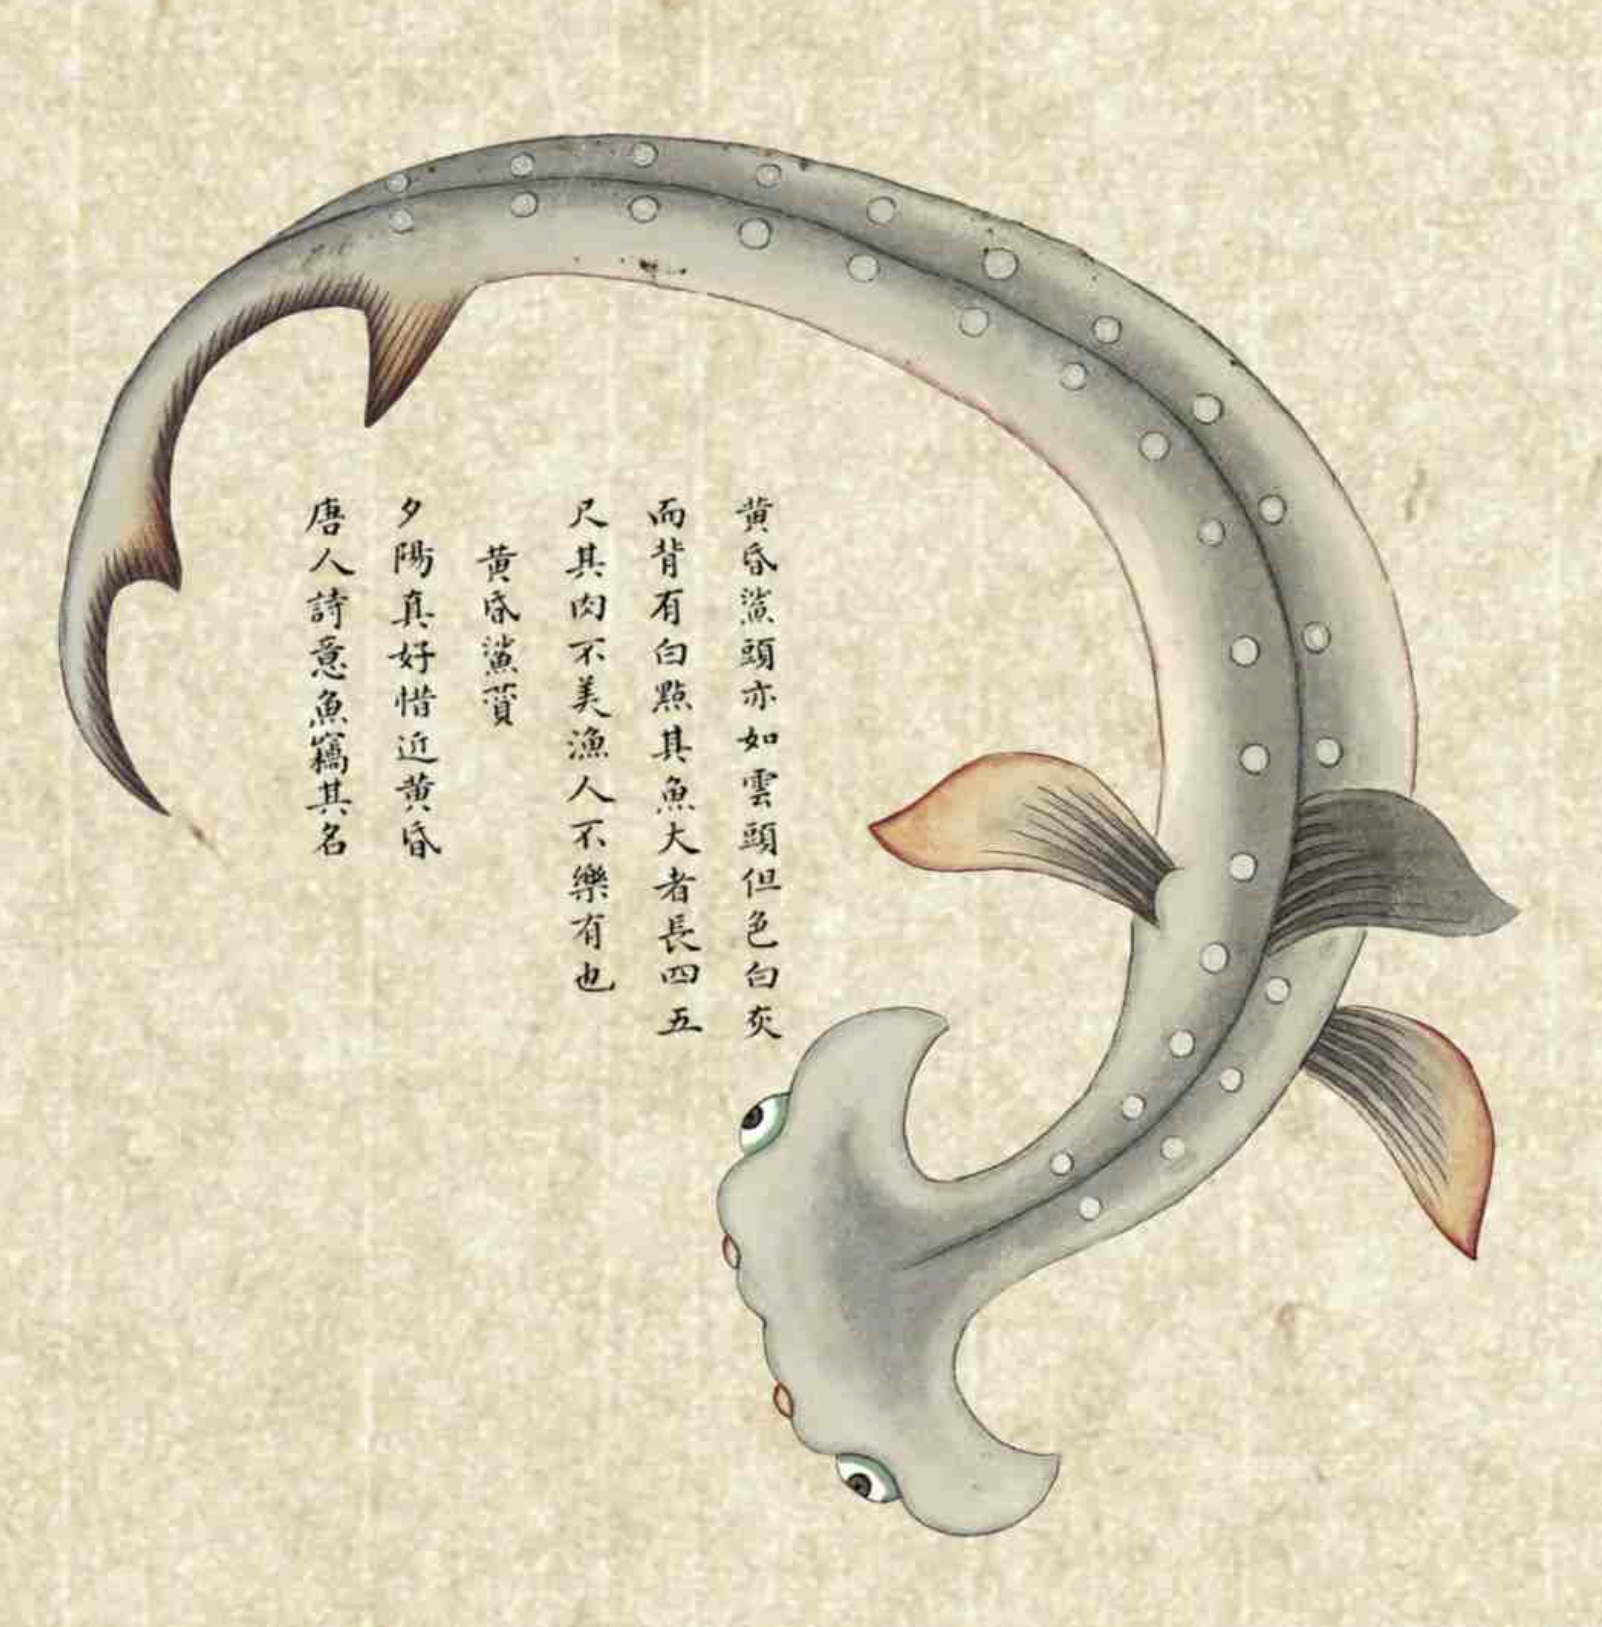 黄昏鯊頭亦如雲頭但色白灰
而背有白點其魚大者長四五
尺其肉不美漁人不樂有也
黄昏鯊賛
夕陽真好惜近黄昏
唐人詩意魚竊其名